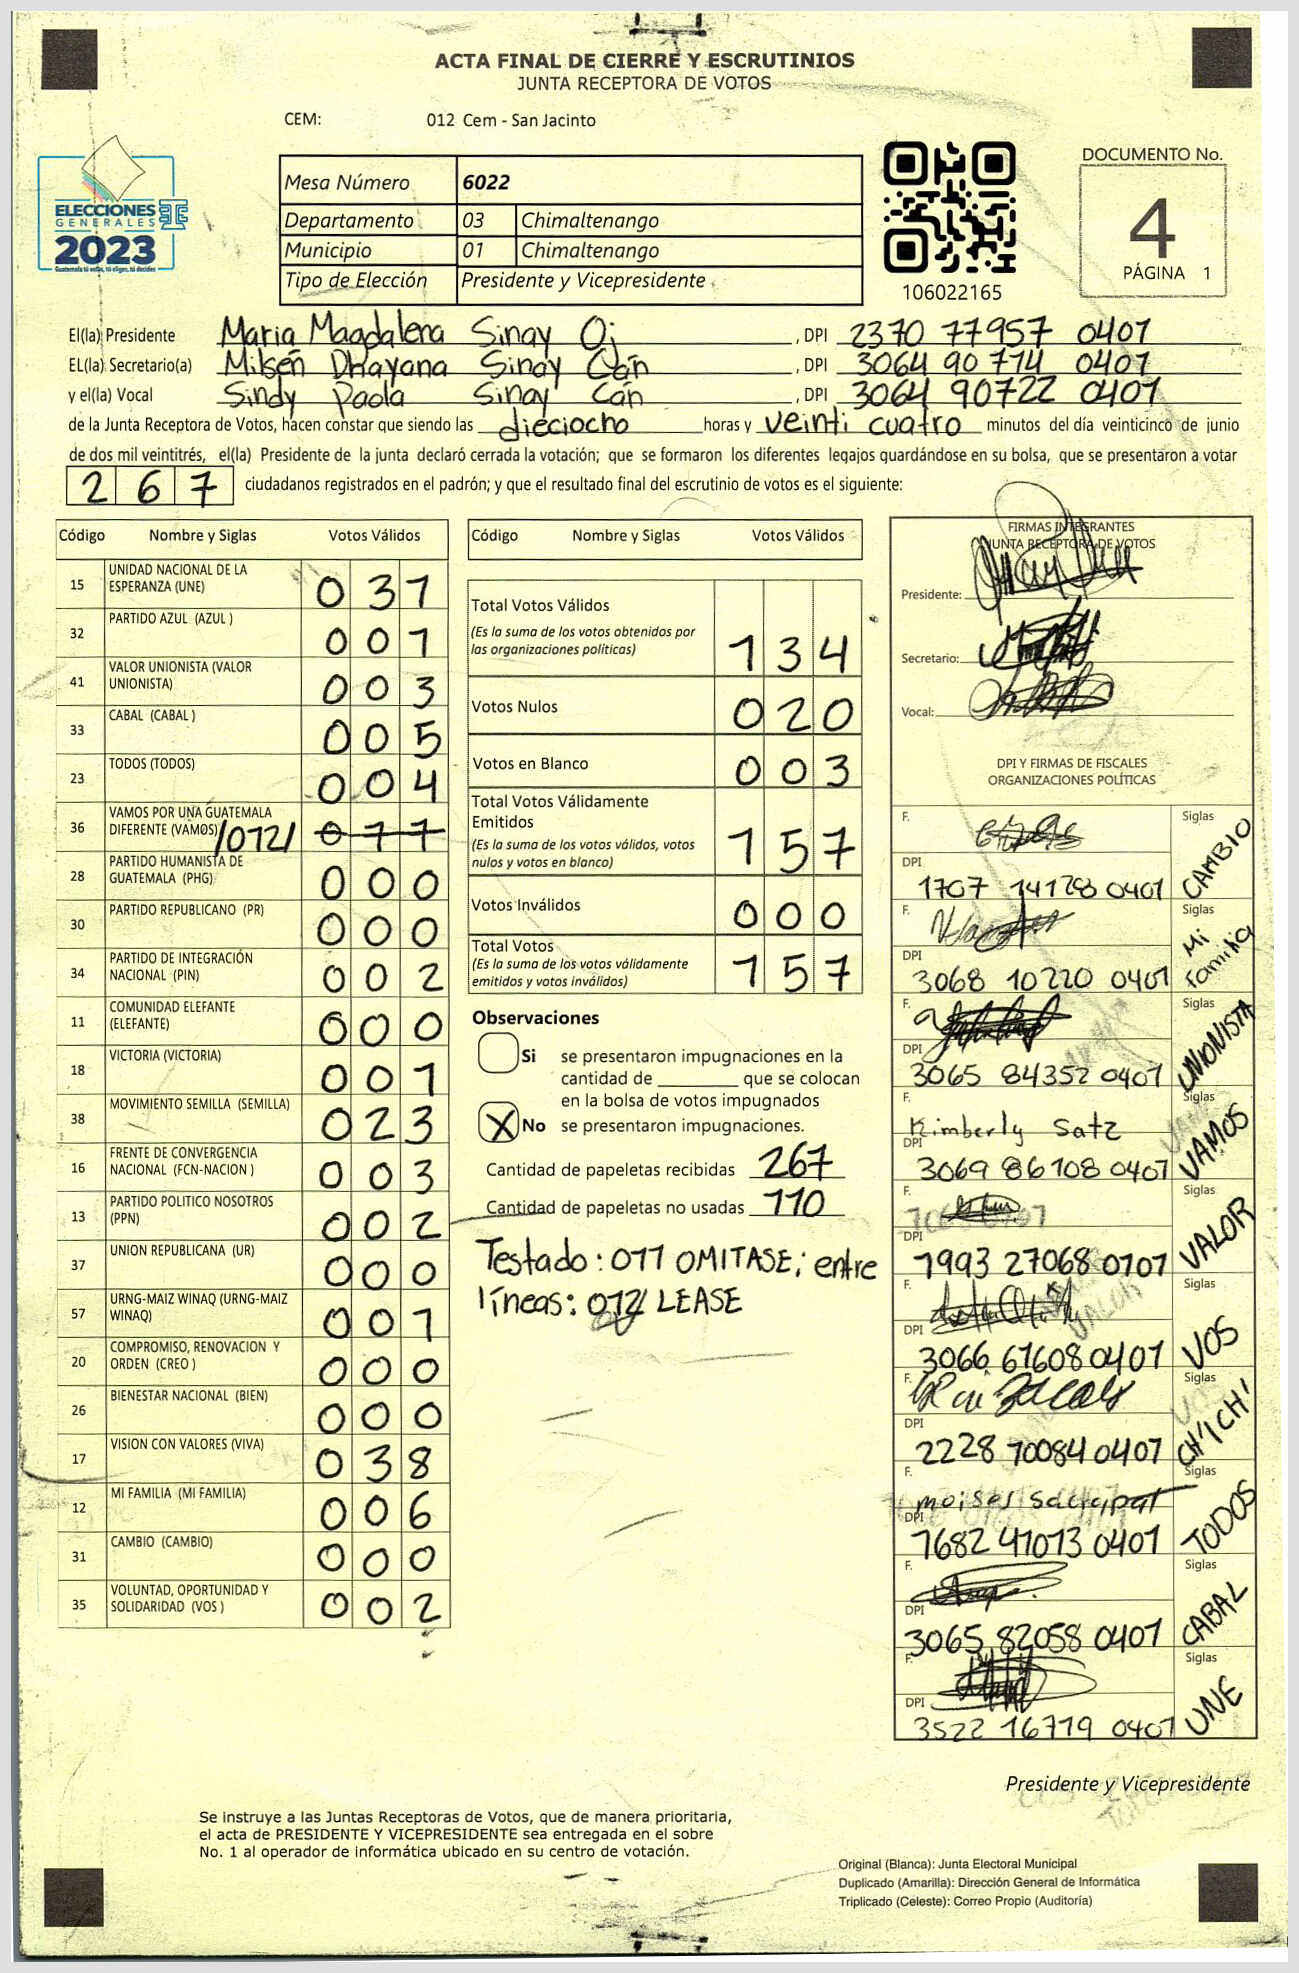 ACTA FINAL DE CIERRE Y ESCRUTINIOS
JUNTA RECEPTORA DE VOTOS
CEM: 012 Cem - San Jacinto
ELECCIONES
GENERALES
2023
Guatemala tú votas, tú eliges, tú decides
Mesa Número 6022
Departamento 03 Chimaltenango
Municipio 01 Chimaltenango
Tipo de Elección Presidente y Vicepresidente
106022165
DOCUMENTO No.
4
PÁGINA 1
El(la) Presidente Maria Magdalena Sinay Oj, DPI 2370 77957 0401
EL(la) Secretario(a) Milseń Dhayana Sinay Cán, DPI 3064 90714 0401
y el(la) Vocal Sindy Paola Sinay Cán, DPI 3064 90722 0401
de la Junta Receptora de Votos, hacen constar que siendo las dieciocho horas y veinti cuatro minutos del día veinticinco de junio
de dos mil veintitrés, el(la) Presidente de la junta declaró cerrada la votación; que se formaron los diferentes legajos guardándose en su bolsa, que se presentaron a votar
267 ciudadanos registrados en el padrón; y que el resultado final del escrutinio de votos es el siguiente:
Código Nombre y Siglas Votos Válidos
15 UNIDAD NACIONAL DE LA ESPERANZA (UNE) 037
32 PARTIDO AZUL (AZUL ) 001
41 VALOR UNIONISTA (VALOR UNIONISTA) 003
33 CABAL (CABAL ) 005
23 TODOS (TODOS) 004
36 VAMOS POR UNA GUATEMALA DIFERENTE (VAMOS) /012/ 077
28 PARTIDO HUMANISTA DE GUATEMALA (PHG) 000
30 PARTIDO REPUBLICANO (PR) 000
34 PARTIDO DE INTEGRACIÓN NACIONAL (PIN) 002
11 COMUNIDAD ELEFANTE (ELEFANTE) 000
18 VICTORIA (VICTORIA) 001
38 MOVIMIENTO SEMILLA (SEMILLA) 023
16 FRENTE DE CONVERGENCIA NACIONAL (FCN-NACION ) 003
13 PARTIDO POLITICO NOSOTROS (PPN) 002
37 UNION REPUBLICANA (UR) 000
57 URNG-MAIZ WINAQ (URNG-MAIZ WINAQ) 001
20 COMPROMISO, RENOVACION Y ORDEN (CREO ) 000
26 BIENESTAR NACIONAL (BIEN) 000
17 VISION CON VALORES (VIVA) 038
12 MI FAMILIA (MI FAMILIA) 006
31 CAMBIO (CAMBIO) 000
35 VOLUNTAD, OPORTUNIDAD Y SOLIDARIDAD (VOS ) 002
Código Nombre y Siglas Votos Válidos
Total Votos Válidos 134
(Es la suma de los votos obtenidos por
las organizaciones políticas)
Votos Nulos 020
Votos en Blanco 003
Total Votos Válidamente
Emitidos 157
(Es la suma de los votos válidos, votos
nulos y votos en blanco)
Votos Inválidos 000
Total Votos 157
(Es la suma de los votos válidamente
emitidos y votos inválidos)
Observaciones
Si se presentaron impugnaciones en la
cantidad de ________ que se colocan
en la bolsa de votos impugnados
X No se presentaron impugnaciones.
Cantidad de papeletas recibidas 267
Cantidad de papeletas no usadas 110
Testado: 011 OMITASE; entre
líneas: 012/ LEASE
FIRMAS INTEGRANTES
JUNTA RECEPTORA DE VOTOS
Presidente:
Secretario:
Vocal:
DPI Y FIRMAS DE FISCALES
ORGANIZACIONES POLÍTICAS
F. Siglas CAMBIO
DPI 1707 14128 0401
F. Siglas Mi Familia
DPI 3068 10220 0401
F. Siglas UNIONISTA
DPI 3065 84352 0401
F. Kimberly Satz Siglas VAMOS
DPI 3069 86108 0401
F. Siglas VALOR
DPI 1993 27068 0101
F. Siglas VOS
DPI 3066 61608 0401
F. Siglas CH'ICH'
DPI 2228 70084 0407
F. moises sacrapat Siglas TODOS
DPI 1682 41013 0401
F. Siglas CABAL
DPI 3065 82058 0401
F. Siglas UNE
DPI 3522 16719 0401
Presidente y Vicepresidente
Se instruye a las Juntas Receptoras de Votos, que de manera prioritaria,
el acta de PRESIDENTE Y VICEPRESIDENTE sea entregada en el sobre
No. 1 al operador de informática ubicado en su centro de votación.
Original (Blanca): Junta Electoral Municipal
Duplicado (Amarilla): Dirección General de Informática
Triplicado (Celeste): Correo Propio (Auditoría)